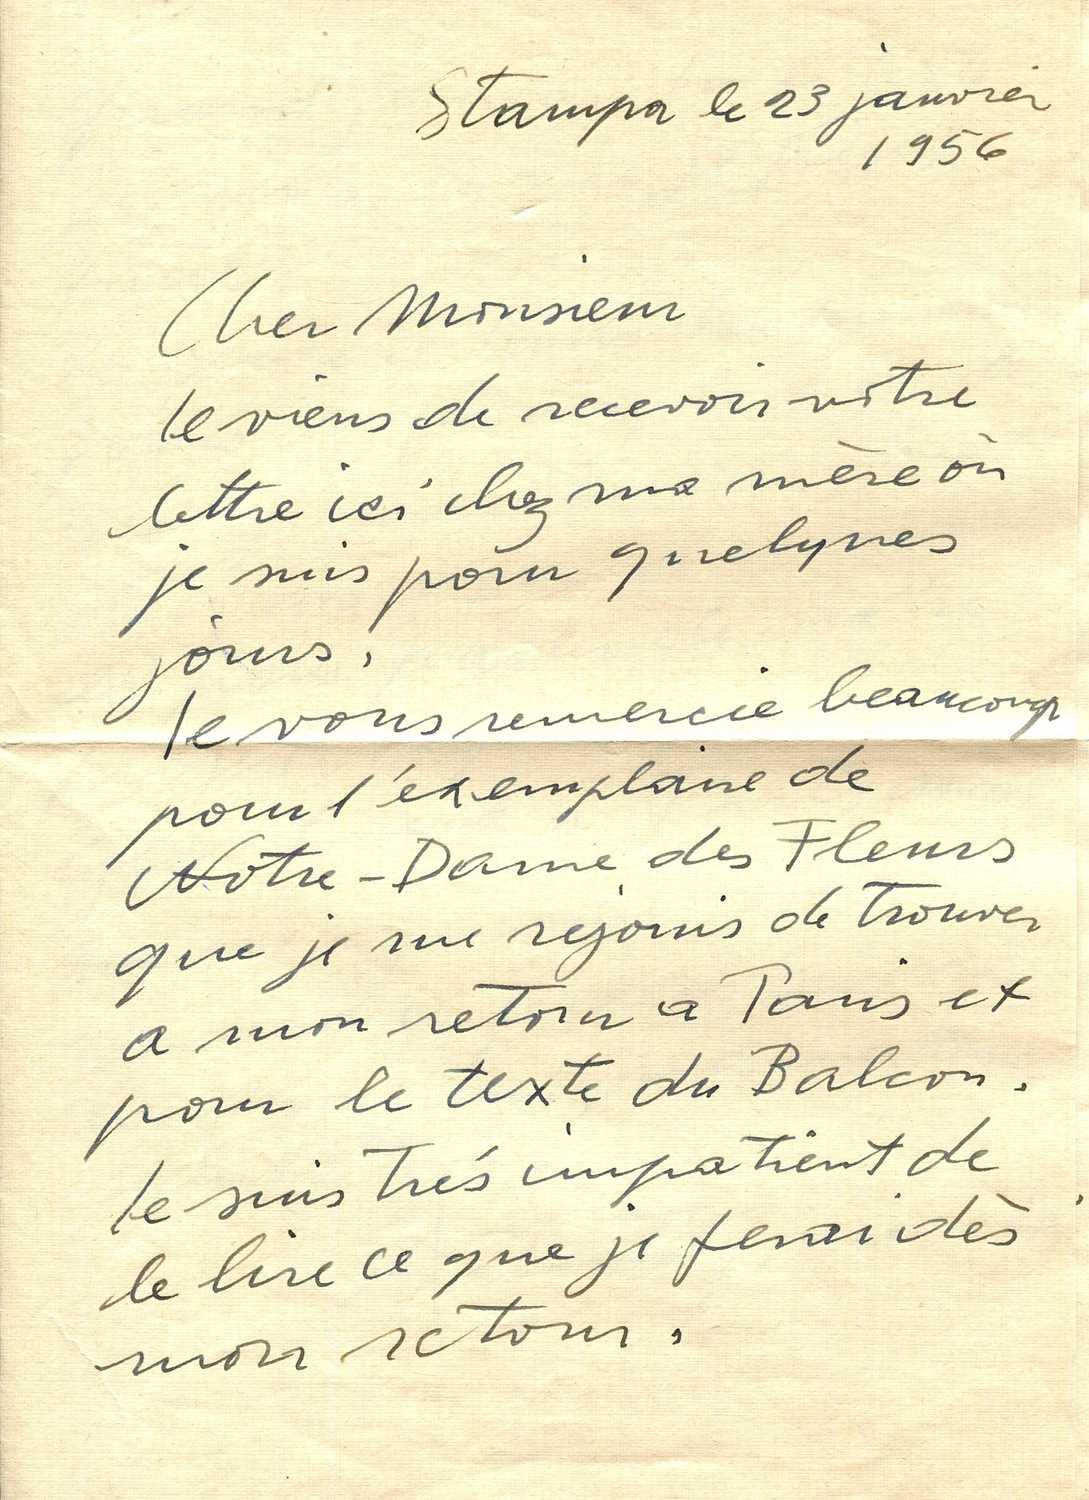 Stampa le 23 janvier
1956
Cher Monsieur
Je viens de recevoir votre
lettre ici chez ma mère où
je suis pour quelques
jours.
Je vous remercie beaucoup
pour l'exemplaire de
Notre-Dame des Fleurs
que je me rejouis de trouver
a mon retour a Paris et
pour le texte du Balcon.
Je suis trés impatient de
le lire ce que je ferai dès
mon retour.